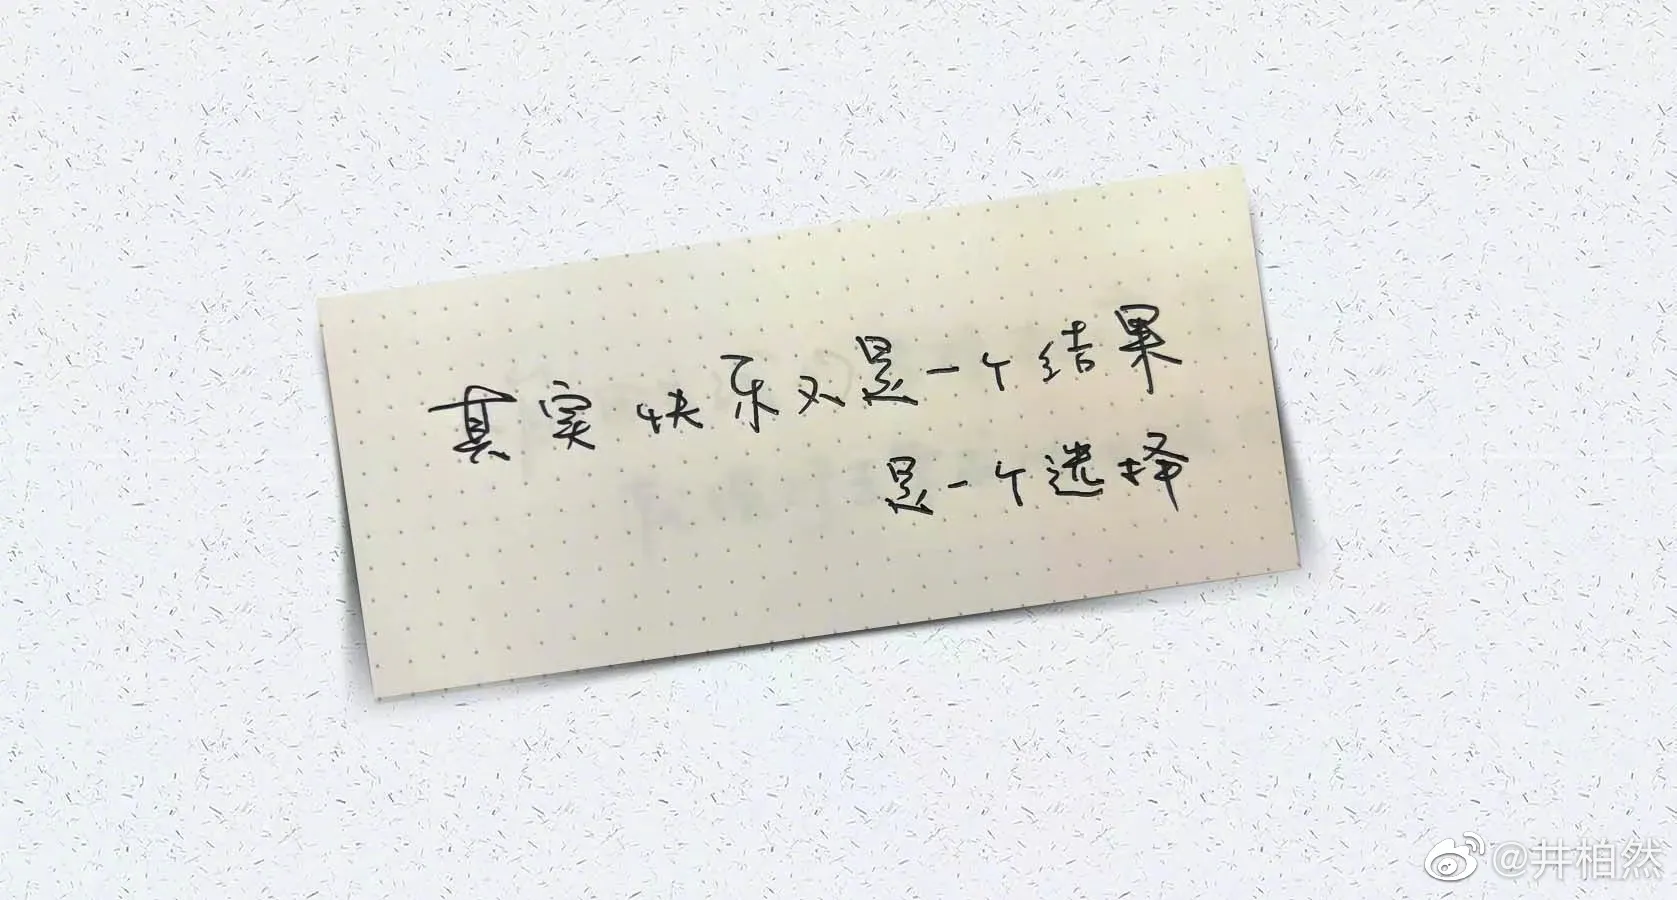 其实快乐不是一个结果
是一个选择
@井柏然